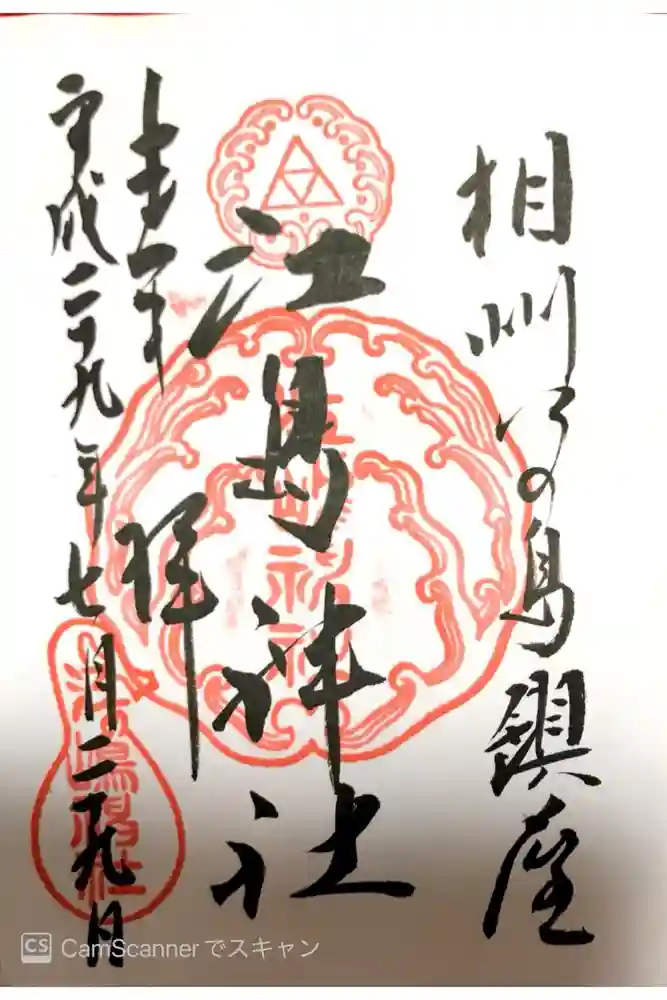 相州江の島鎮座
江島神社
奉拝
平成二十九年七月二十九日
CamScannerでスキャン